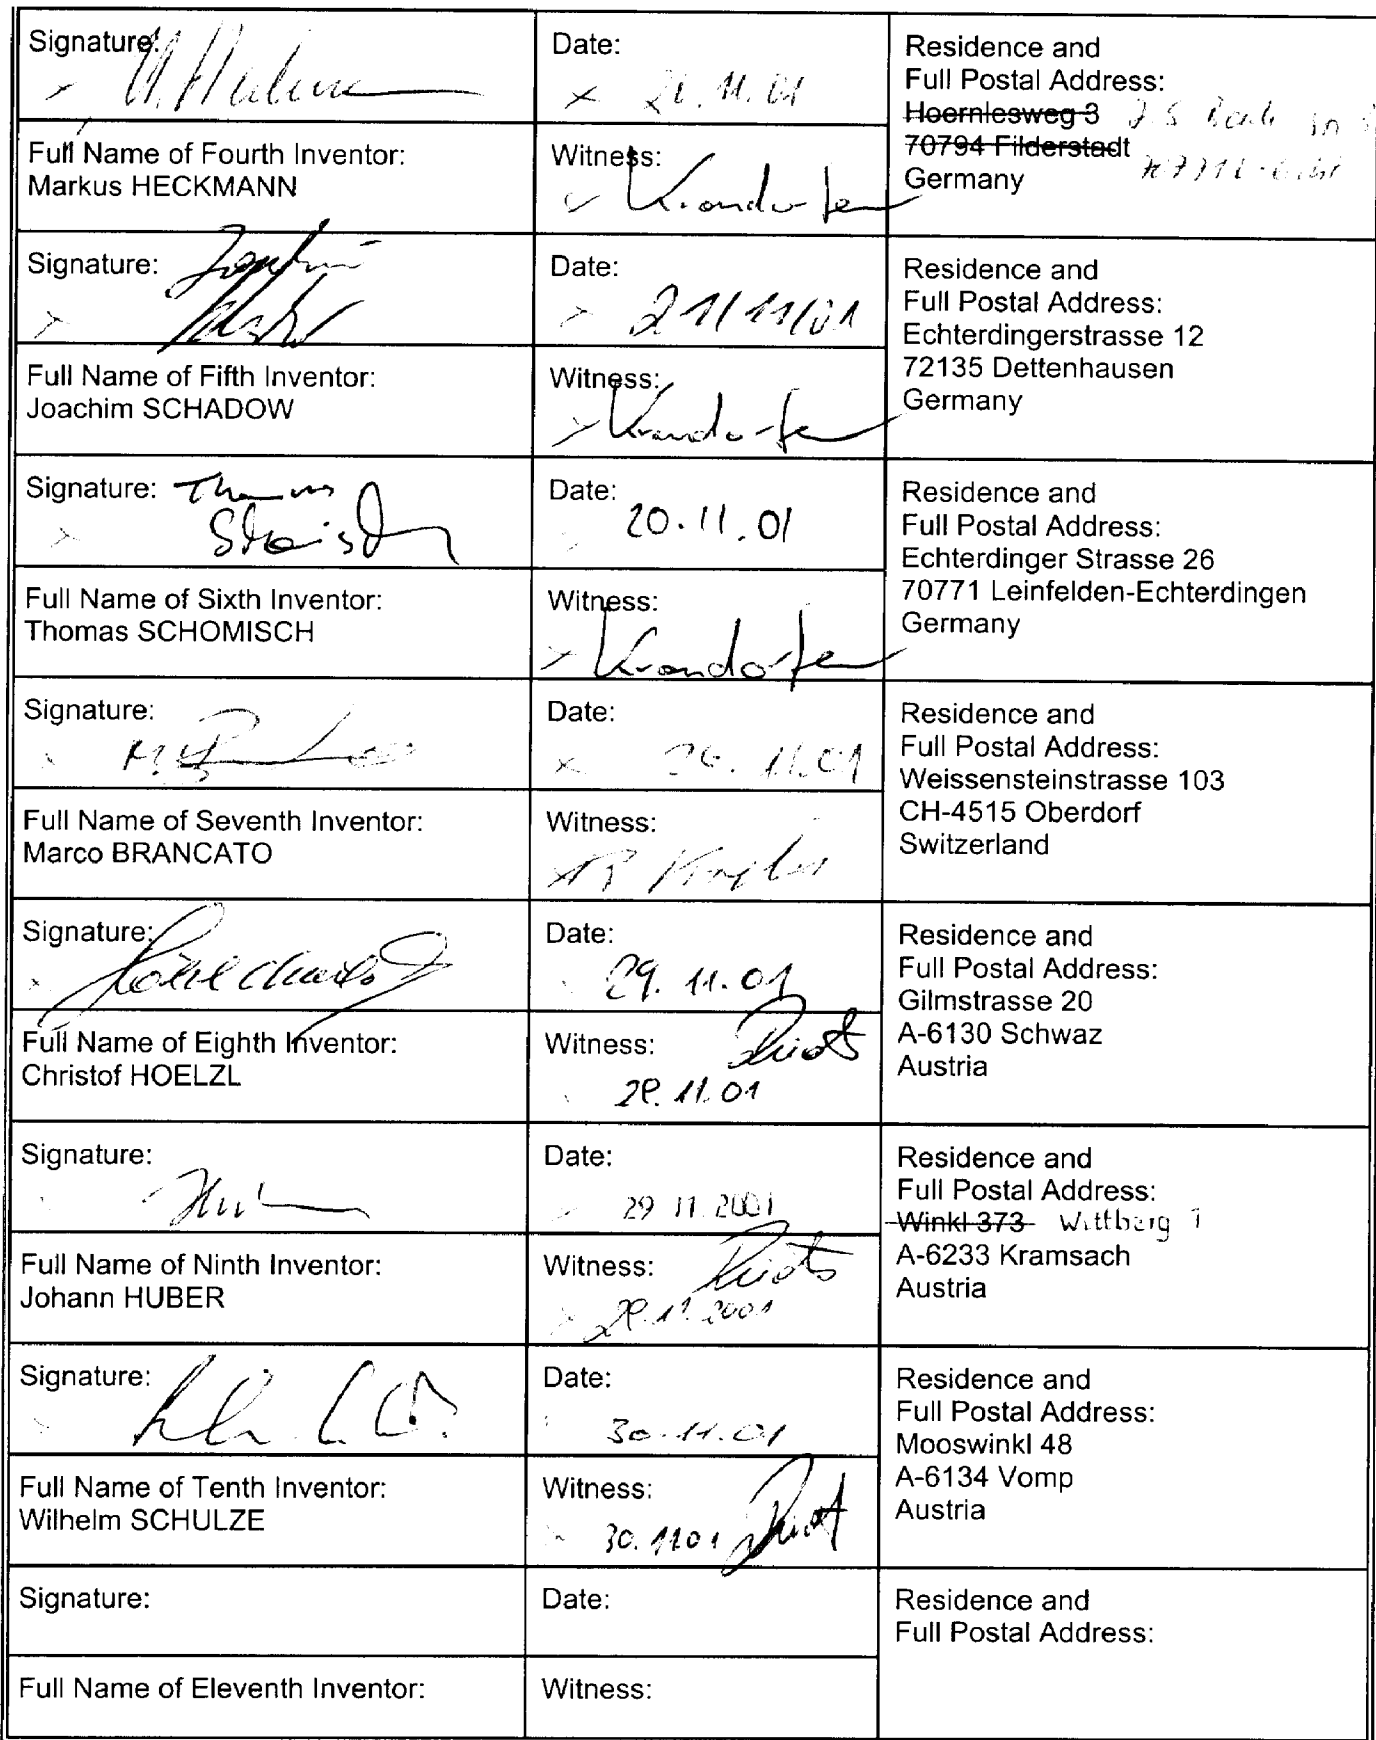 Signature:
Date:
Residence and
Full Postal Address:
Hoernlesweg 3
70794 Filderstadt
Germany
Full Name of Fourth Inventor:
Markus HECKMANN
Witness:
Signature: Joachim
Date:
21/11/01
Residence and
Full Postal Address:
Echterdingerstrasse 12
72135 Dettenhausen
Germany
Full Name of Fifth Inventor:
Joachim SCHADOW
Witness:
Signature: Thomas
Date:
20.11.01
Residence and
Full Postal Address:
Echterdinger Strasse 26
70771 Leinfelden-Echterdingen
Germany
Full Name of Sixth Inventor:
Thomas SCHOMISCH
Witness:
Signature:
Date:
Residence and
Full Postal Address:
Weissensteinstrasse 103
CH-4515 Oberdorf
Switzerland
Full Name of Seventh Inventor:
Marco BRANCATO
Witness:
Signature:
Date:
29.11.01
Residence and
Full Postal Address:
Gilmstrasse 20
A-6130 Schwaz
Austria
Full Name of Eighth Inventor:
Christof HOELZL
Witness:
29.11.01
Signature:
Huber
Date:
29 11.2001
Residence and
Full Postal Address:
Winkl 373 Wittberg 1
A-6233 Kramsach
Austria
Full Name of Ninth Inventor:
Johann HUBER
Witness:
29.11.2001
Signature:
Date:
30.11.01
Residence and
Full Postal Address:
Mooswinkl 48
A-6134 Vomp
Austria
Full Name of Tenth Inventor:
Wilhelm SCHULZE
Witness:
30.11.01
Signature:
Date:
Residence and
Full Postal Address:
Full Name of Eleventh Inventor:
Witness: